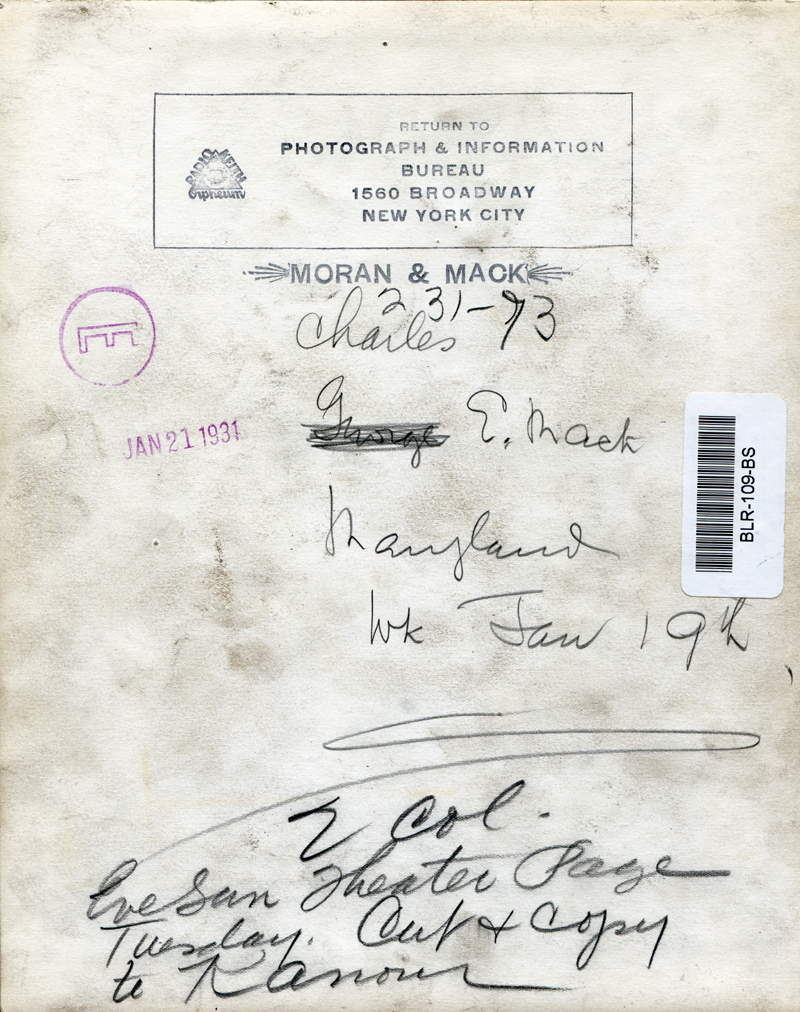 RETURN TO
PHOTOGRAPH & INFORMATION
BUREAU
1560 BROADWAY
NEW YORK CITY
RADIO KEITH
Orpheum
MORAN & MACK
231-93
Charles
George E. Mack
E
JAN 21 1931
BLR-109-BS
Maryland
Wk Jan 19th
2 Col.
Eve Sun Theater Page
Tuesday. Cut & Copy
to Kanour